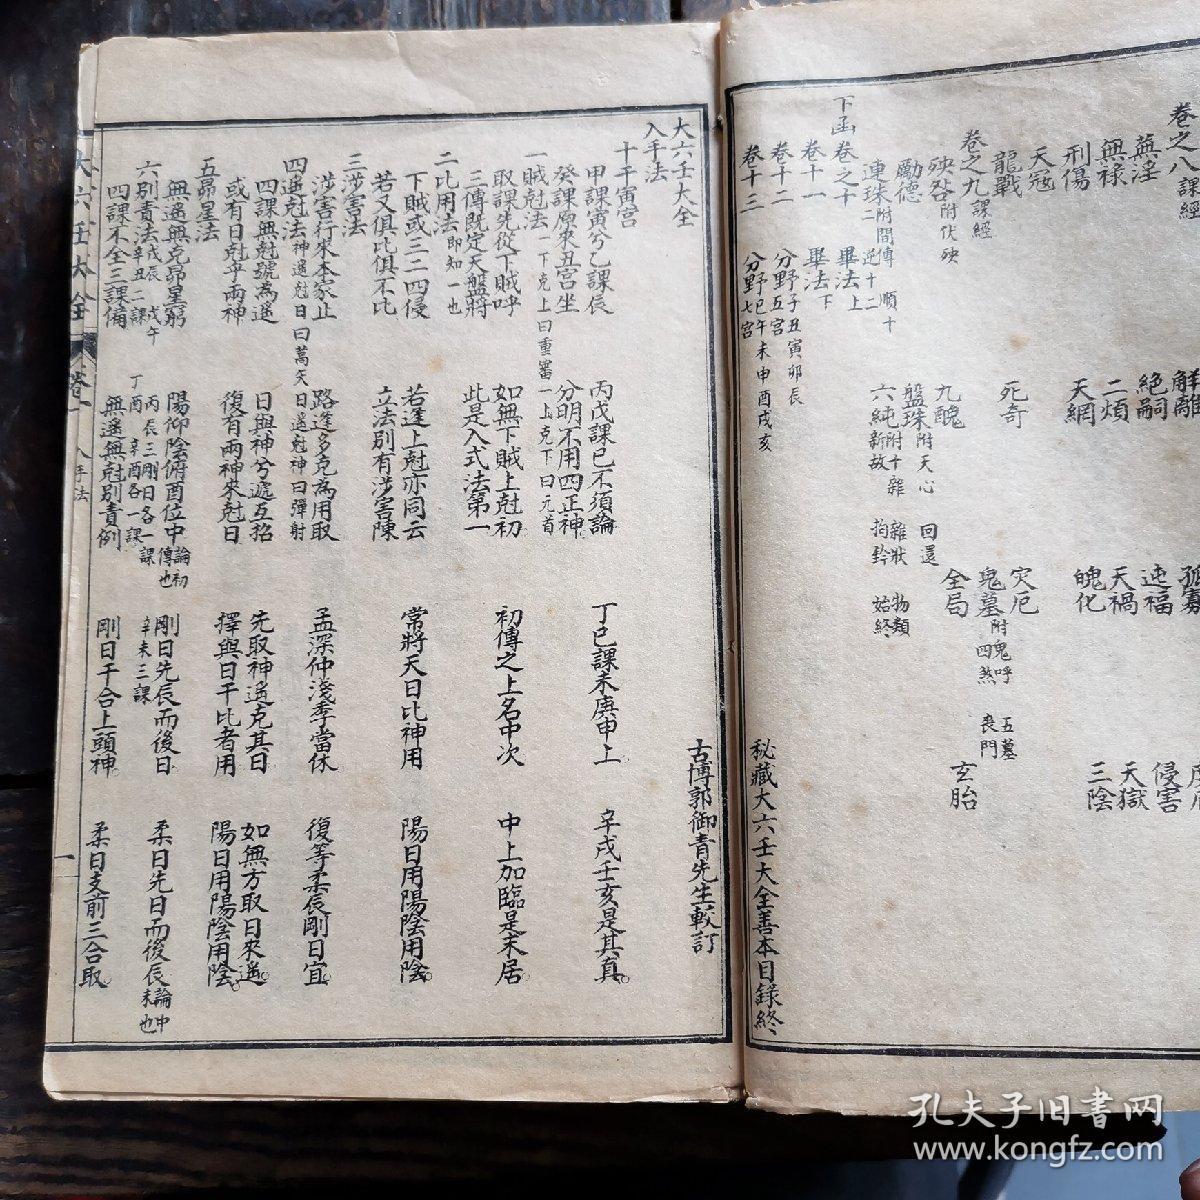 卷之八課經
蕪淫 解離 孤寡
無祿 絕嗣 迍福 侵害
刑傷 二煩 天禍 天獄
天寇 天網 魄化 三陰
龍戰 死奇 災厄
卷之九課經
殃咎附伏殃 九醜 鬼墓附鬼呼四煞 五墓喪門
勵德 盤珠附天心 回還 全局 玄胎
連珠附間傳順十二逆十二 六純附十雜新故 雜狀 物類 拘鈐 始終
下函卷之十 畢法上
卷十一 畢法下
卷十二 分野子丑寅卯辰五宮
卷十三 分野巳午未申酉戌亥七宮
秘藏大六壬大全善本目錄終
大六壬大全
入手法 古博郭御青先生較訂
十干寅宮
甲課寅兮乙課辰 丙戊課巳不須論 丁巳課未庚申上 辛戌壬亥是其真
癸課原來丑宮坐 分明不用四正神
一賊尅法一下克上曰重審一上克下曰元首
取課先從下賊呼 如無下賊上尅初 初傳之上名中次 中上加臨是末居
三傳既定天盤將 此是入式法第一
二比用法即知一也
下賊或三二四侵 若逢上尅亦同云 常將天日比神用 陽日用陽陰用陰
若又俱比俱不比 立法別有涉害陳
三涉害法
涉害行來本家止 路逢多克為用取 孟深仲淺季當休 復等柔辰剛日宜
四遙尅法神遙尅日曰蒿矢日遙尅神曰彈射
四課無尅號為遙 日與神兮遞互招 先取神遙克其日 如無方取日來遙
或有日尅乎兩神 復有兩神來尅日 擇與日干比者用 陽日用陽陰用陰
五昴星法
無遙無克昴星窮 陽仰陰俯酉位中論初傳也 剛日先辰而後日 柔日先日而後辰論中末也
六別責法戊辰戊午丙辰三剛日各一課辛丑二課丁酉辛酉各一課辛未三課
四課不全三課備 無遙無尅別責例 剛日干合上頭神 柔日支前三合取
大六壬大全 卷一 入手法 一
孔夫子旧书网
www.kongfz.com